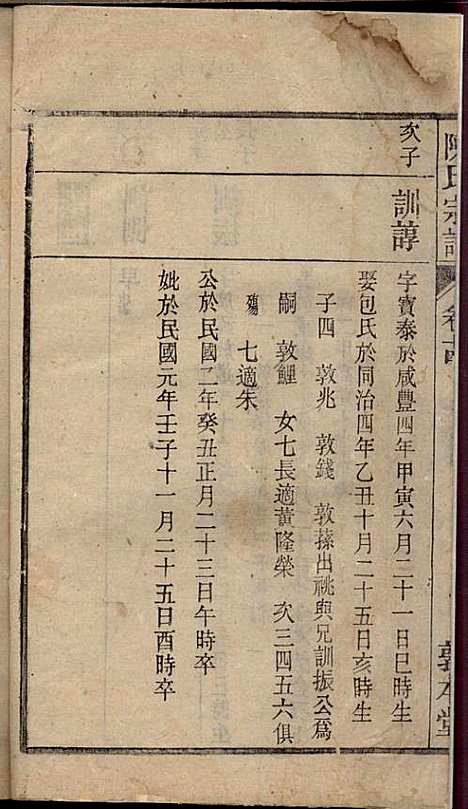 陳氏宗譜
卷十四
敦本堂
次子
訓諄
字寶泰於咸豐四年甲寅六月二十一日巳時生
娶包氏於同治四年乙丑十月二十五日亥時生
子四 敦兆 敦錢 敦蓀出祧與兄訓振公爲
嗣 敦鯉 女七長適黃隆榮 次三四五六俱
殤 七適朱
公於民國二年癸丑正月二十三日午時卒
妣於民國元年壬子十一月二十五日酉時卒